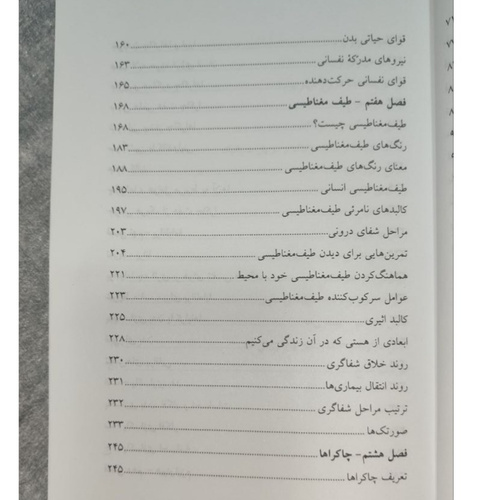 قوای حیاتی بدن ۱۶۰
نیروهای مدرکهٔ نفسانی ۱۶۳
قوای نفسانی حرکت‌دهنده ۱۶۵
فصل هفتم - طیف مغناطیسی ۱۶۸
طیف‌مغناطیسی چیست؟ ۱۶۸
رنگ‌های طیف‌مغناطیسی ۱۸۳
معنای رنگ‌های طیف‌مغناطیسی ۱۸۸
طیف‌مغناطیسی انسانی ۱۹۵
کالبدهای نامرئی طیف‌مغناطیسی ۱۹۷
مراحل شفای درونی ۲۰۳
تمرین‌هایی برای دیدن طیف‌مغناطیسی ۲۰۴
هماهنگ‌کردن طیف‌مغناطیسی خود با محیط ۲۲۱
عوامل سرکوب‌کننده طیف‌مغناطیسی ۲۲۳
کالبد اثیری ۲۲۵
ابعادی از هستی که در آن زندگی می‌کنیم ۲۲۸
روند خلاق شفاگری ۲۳۰
روند انتقال بیماری‌ها ۲۳۱
ترتیب مراحل شفاگری ۲۳۲
صورتک‌ها ۲۳۳
فصل هشتم - چاکراها ۲۴۵
تعریف چاکراها ۲۴۵